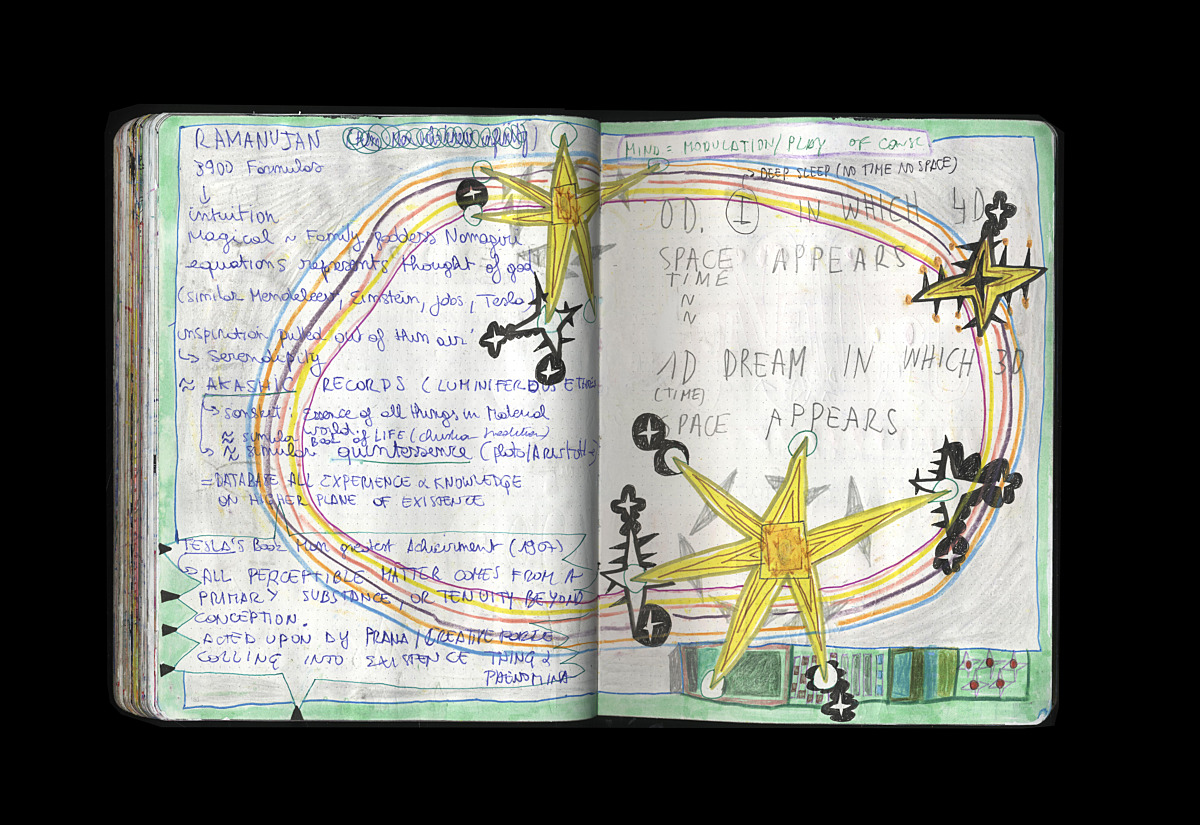 RAMANUJAN
3900 Formulas
↓
intuition
Magical ~ Family goddess Namagiri
equations represents thought of god
(similar Mendeleev, Einstein, Jobs, Tesla
inspiration pulled out of thin air'
↳ Serendipity
≈ AKASHIC RECORDS (LUMINIFEROUS ETHER
↳ sanskrit: Essence of all things in Material
world.
≈ similar Book of LIFE (christian tradition)
↳ ≈ similar quintessence (plato/Aristotle)
= DATABASE ALL EXPERIENCE & KNOWLEDGE
ON HIGHER PLANE OF EXISTENCE
TESLA'S Book Man greatest Achievment (1907)
ALL PERCEPTIBLE MATTER COMES FROM A
PRIMARY SUBSTANCE, OR TENUITY BEYOND
CONCEPTION.
ACTED UPON BY PRANA/CREATIVE FORCE
CALLING INTO EXISTENCE THING &
PHENOMINA
MIND = MODULATION/PLAY OF CONSC
→ DEEP SLEEP (NO TIME NO SPACE)
0D. I IN WHICH 4D
SPACE APPEARS
TIME
~
~
1D DREAM IN WHICH 3D
(TIME)
SPACE APPEARS